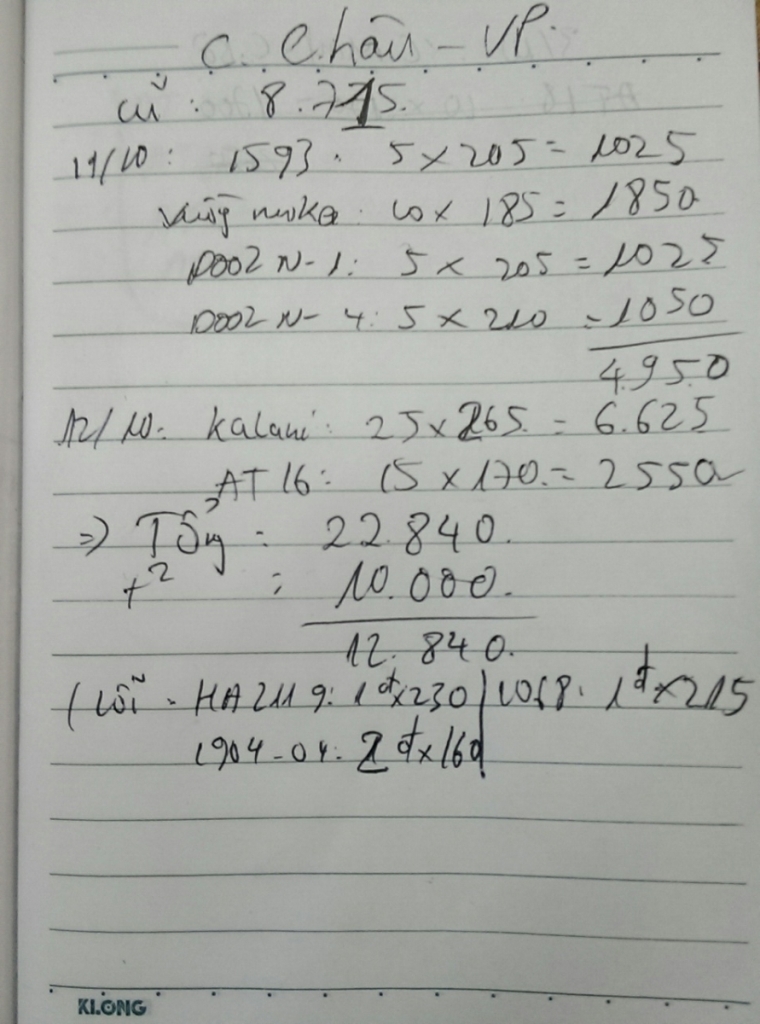 C. Châu - VP.
Cũ : 8.715.
11/10 : 1593 . 5 x 205 = 1025
10 x 185 = 1850
D002 N-1 : 5 x 205 = 1025
D002 N-4 : 5 x 210 = 1050
4.950
12/10 : Kalani : 25 x 265 = 6.625
AT16 : 15 x 170 = 2550
=> Tổng : 22.840.
: 10.000.
12.840.
( Lỗi - HA2119 : 1đ x 230 / 1068 : 1đ x 215
1904-04 : 2đ x 160
KLONG